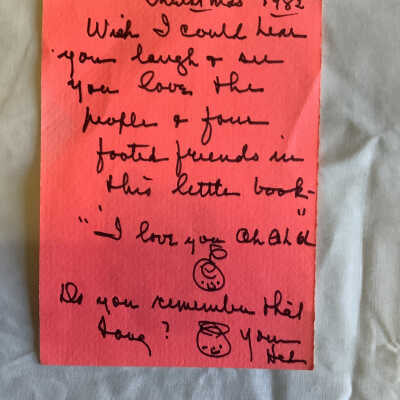 Christmas 1982
Wish I could hear
you laugh & see
you love the
people & four
footed friends in
this little book-
" I love you ah ah ah "
Do you remember that
song? your